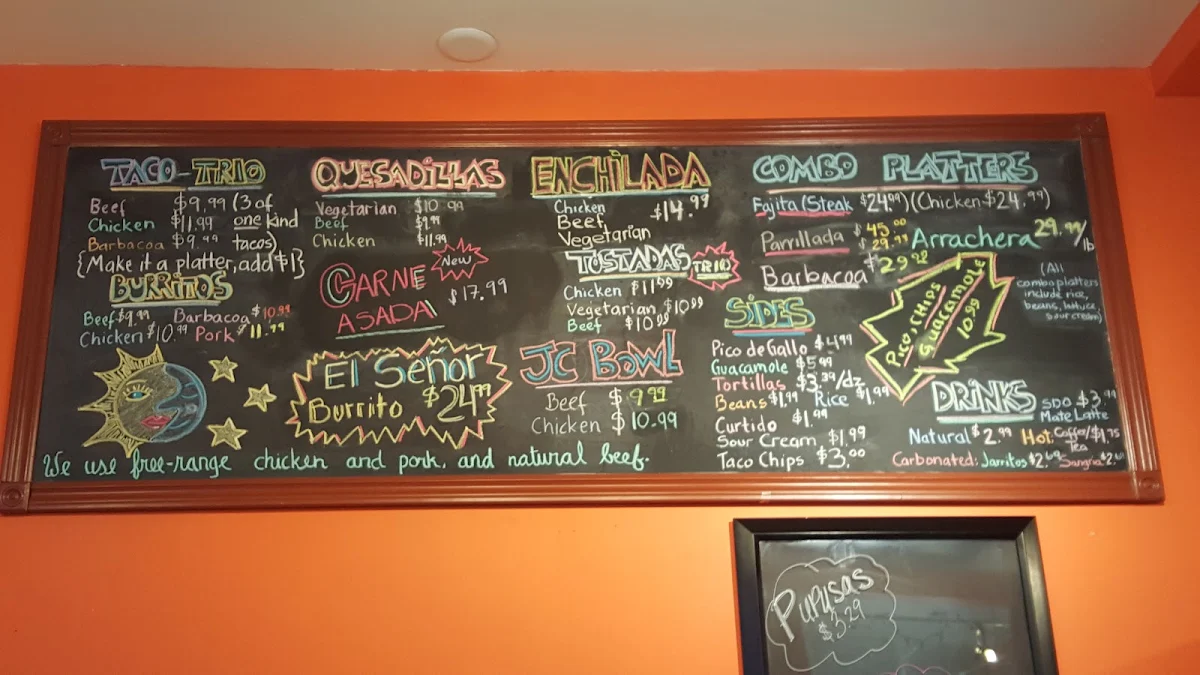 TACO-TRIO
Beef $9.99 (3 of
Chicken $11.99 one kind
Barbacoa $9.99 tacos)
{Make it a platter, add $1}
BURRITOS
Beef $9.99 Barbacoa $10.99
Chicken $10.99 Pork $11.99
QUESADILLAS
Vegetarian $10.99
Beef $9.99
Chicken $11.99
New
CARNE
ASADA $17.99
El Señor
Burrito $24.99
ENCHILADA
Chicken
Beef $14.99
Vegetarian
TOSTADAS TRIO
Chicken $11.99
Vegetarian $10.99
Beef $10.99
JC BOWL
Beef $9.99
Chicken $10.99
COMBO PLATTERS
Fajita (Steak $24.99) (Chicken $24.99)
Parrillada $45.00
$29.99
Arrachera 29.99/lb
Barbacoa $29.99
(All
combo platters
include rice,
beans, lettuce,
sour cream)
PICO CHIPS
Guacamole
10.99
SIDES
Pico de Gallo $4.99
Guacamole $5.99
Tortillas $3.39/dz
Beans $1.99 Rice $1.99
Curtido $1.99
Sour Cream $1.99
Taco Chips $3.00
DRINKS
$3.99
Mate Latte
Natural $2.99 Hot: Coffee/Tea $1.75
Carbonated: Jarritos $2.69 Sangria $2.69
We use free-range chicken and pork, and natural beef.
Pupusas
$3.29